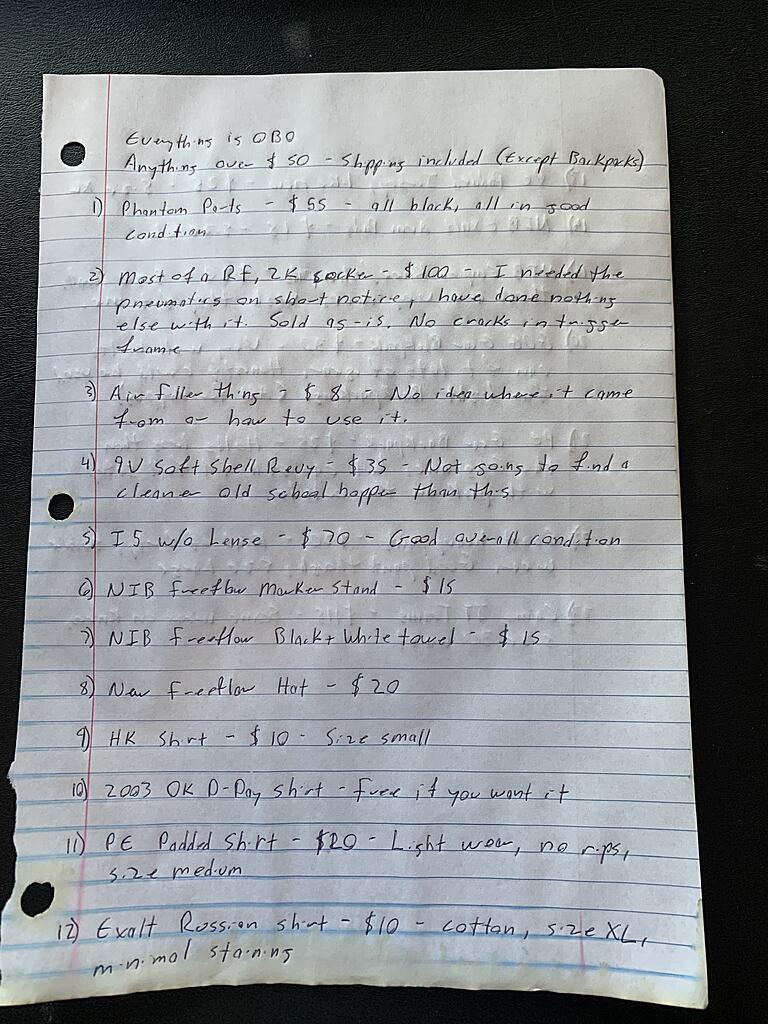 Everything is OBO
Anything over $50 - Shipping included (Except Backpacks)
1) Phantom Parts - $55 - all black, all in good
condition
2) Most of a RF, 2K - $100 - I needed the
pneumatics on short notice, have done nothing
else with it. Sold as-is. No cracks in trigger
frame
3) Air filler thing - $8 - No idea where it came
from or how to use it.
4) 9V Soft Shell Revy - $35 - Not going to find a
cleaner old school hopper than this
5) I5 w/o Lense - $70 - Good overall condition
6) NIB Freeflow Marker Stand - $15
7) NIB Freeflow Black + White towel - $15
8) New Freeflow Hat - $20
9) HK Shirt - $10 - Size small
10) 2003 OK D-Day Shirt - Free if you want it
11) PE Padded Shirt - $20 - Light wear, no rips,
size medium
12) Exalt Russian shirt - $10 - cotton, size XL,
minimal staining